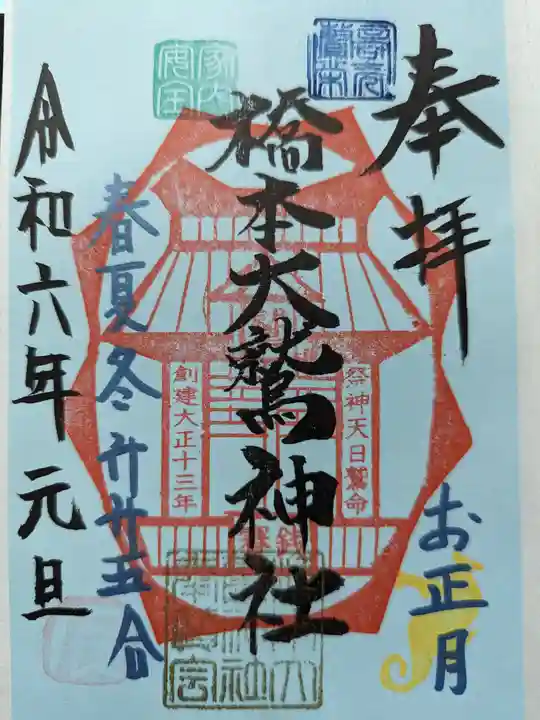 奉拝
お正月
壽老
家内安全
橋本大鷲神社
祭神天日鷲命
創建大正十三年
春夏冬升廿五合
令和六年元旦